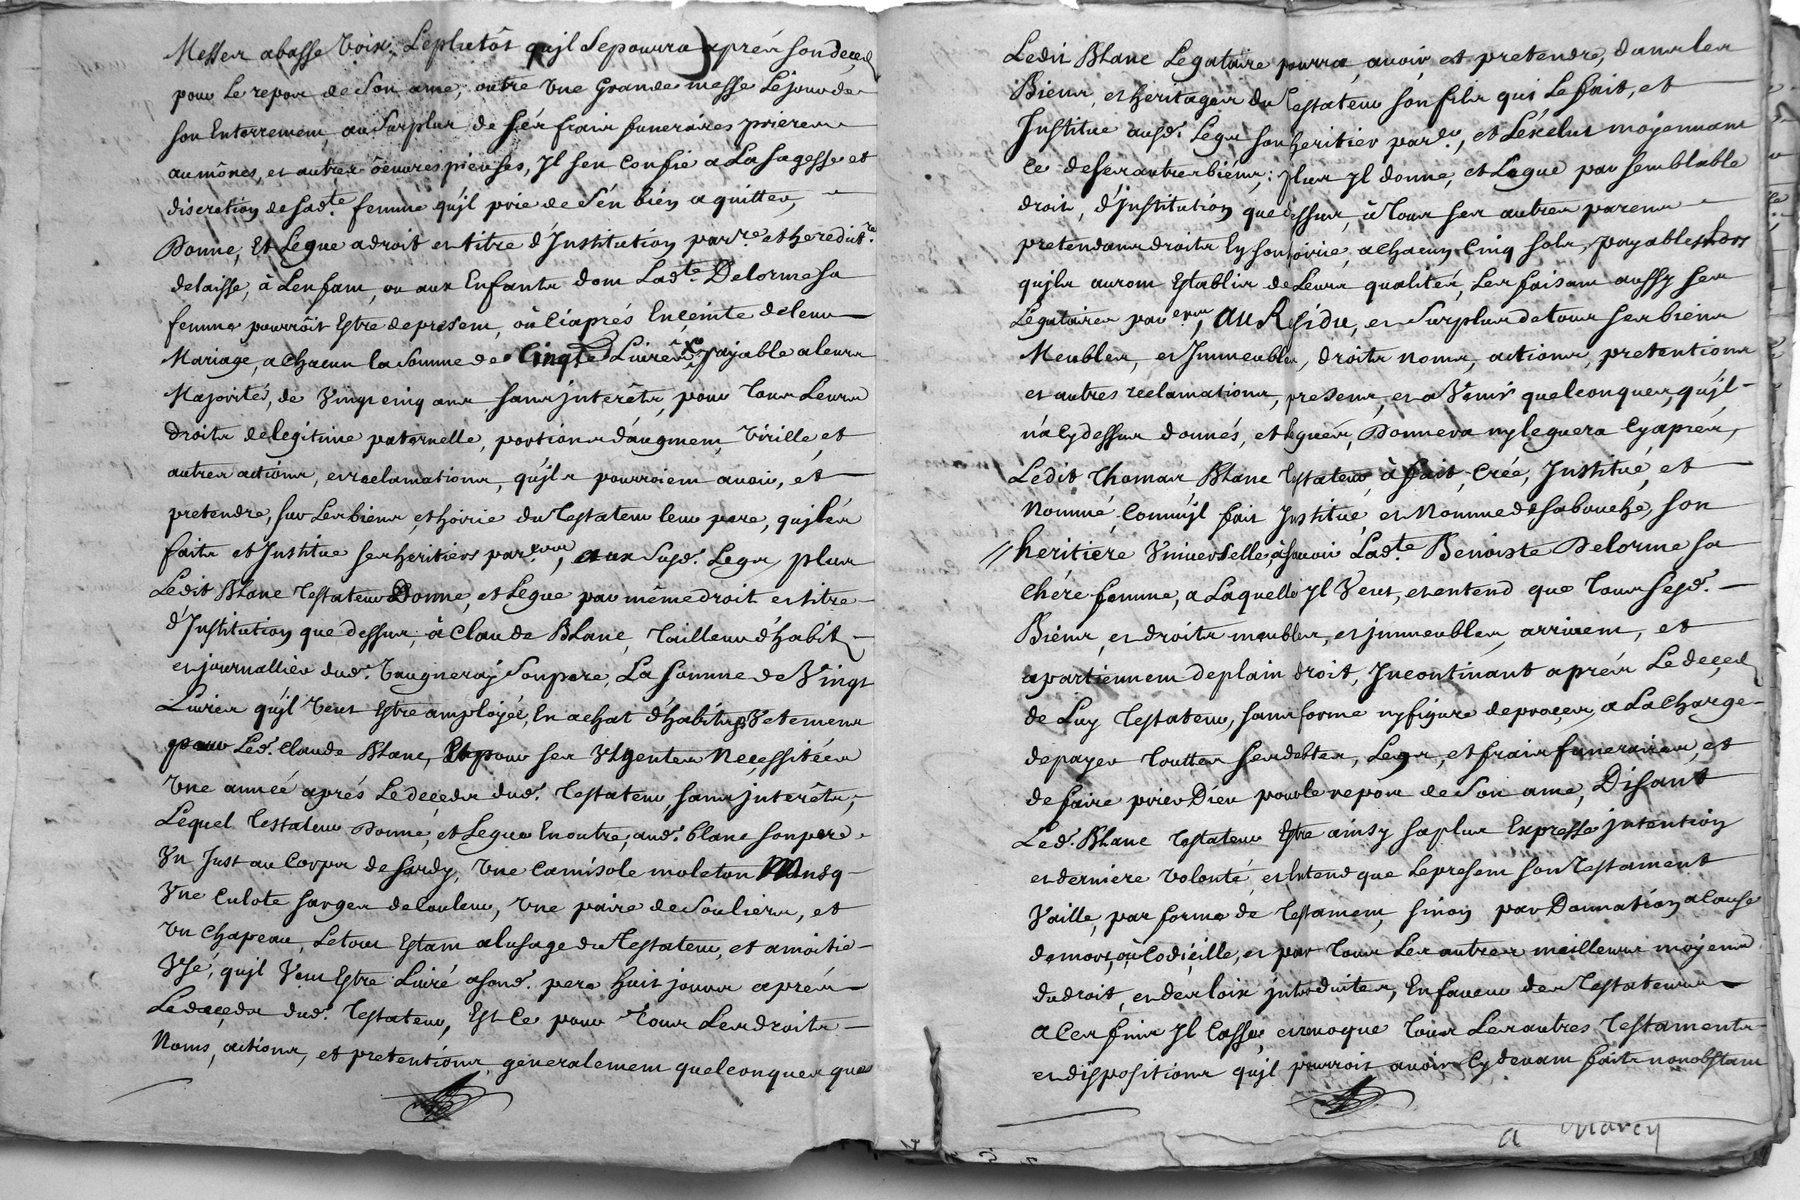 Messes abasse Voix, Leplutôt qujl Sepourra aprés son deced
pour Le repos de Son ame, outre Vne Grande messe Lejour de
son Enterrement, au Surplus de sés frais funeraires prieres
aumônes, et autres oêuvres pieuses, Jl sen Confie a La sagesse et
discretion de sadte. femme qu'jl prie de s'én bién aquitter,
Donne, Et Legue adroit et titre d'Institution parre. et heredit.re
delaisse, à Lenfant, ou aux Enfants dont Ladte. Delorme sa
femme pourrôit Estre depresent, où Ciaprés Enceinte deleur
Mariage, achacun la Somme de Cinq Livres payable aleurs
Majorités, de Vingt cinq ans sans jntérêts, pour Tous Leurs
droits delegitime paternelle, portions d'augment, Virille, et
autres actions, et reclamations, qu'jls pourroient avoir, et
pretendre, sur Les biens, et hoirie du Testateur leur pere, qu'jl les
faits et Institue ses heritiers par.ers, aux Susd. Legs, plus
Ledit Blanc Testateur Donne, et Legue par même droit et titre
d'Institution que dessus, à Claude Blanc, Tailleur d'habits
et journallier dud. Vaugneray Son pere, La somme de Vingt
Livres qu'jl Veut Estre amployée, En achat d'habits, Vetements
pour Led. Claude Blanc, Et pour ses Vrgentes Necessitées
Vne année aprés Le decéds dud. Testateur, sans jnterêts,
Lequel Testateur Donne, et Legue En outre, aud. blanc son pere
Vn Just au Corps de sardy, Vne Camisole moleton
Vne Culote sarges de Couleur, Vne paire de Souliers, et
Vn Chapeau, Le tout Estant alusage du Testateur, et amoitié
Vsé, qu'jl Veut Estre Livré asond. pere huit jours aprés
Le decéds dud. Testateur, Est Ce pour Tous Les droits
Noms, actions, et pretentions, generalement quelconques que
Ledit Blanc Legataire pourra avoir et pretendre, dans les
Biens, et heritages du Testateur son fils qui Le fait, et
Institue ausd. Legs son heritier par.er, et Lexclut moyennant
ce de ses autres biéns; plus Jl donne, et Legue par semblable
droit, d'Institution que dessus, à Tous ses autres parents
pretendans droits En son hoirie, a chacun Cinq sols, payables Lors
qu'jls auront Establis de Leurs qualités, Les faisant aussy ses
Légataires par.ers, AU Residu, et Surplus de tous ses biens
Meubles, et Jmmeubles, droits noms, actions, pretentions
et autres reclamations, presens, et a Venir quelconques, qu'jl
n'a Cy dessus donnés, et legués, Donnera ny leguera Cyaprés,
Ledit Thomas Blanc Testateur, à fait, Crée, Institué, et
Nommé, Comm'jl fait Institue, et Nomme de sa bouche, son
heritiere Vniverselle, àsavoir Ladte Benoiste Delorme sa
chére femme, a Laquelle Jl Veut, et entend que Tous sesd.
Biéns, et droits meubles, et jmmeubles, arrivent, et
apartiennent de plain droit, Jncontinant aprés Le deced
de Luy Testateur, sans forme ny figure deprocez, a La Charge
de payer Touttes ses debtes, Legs, et frais funeraires, et
de faire prier Dieu pour le repos de Son ame, Disant
Led. Blanc Testateur Estre ainsy sa plus Expresse jntention
et derniere Volonté, et Entend que Le present son Testament
Vaille, par forme de Testament, sinon par Donnation a Cause
de mort, où Codicille, et par Tous Les autres meilleurs moyens
du droit, et des loix jntroduites, En faveur des Testateurs
a Ces fins Jl Casse, et revoque Tous Les autres Testaments
et dispositions qu'jl pourroit avoir Cy devant faits nonobstant
a Marcy